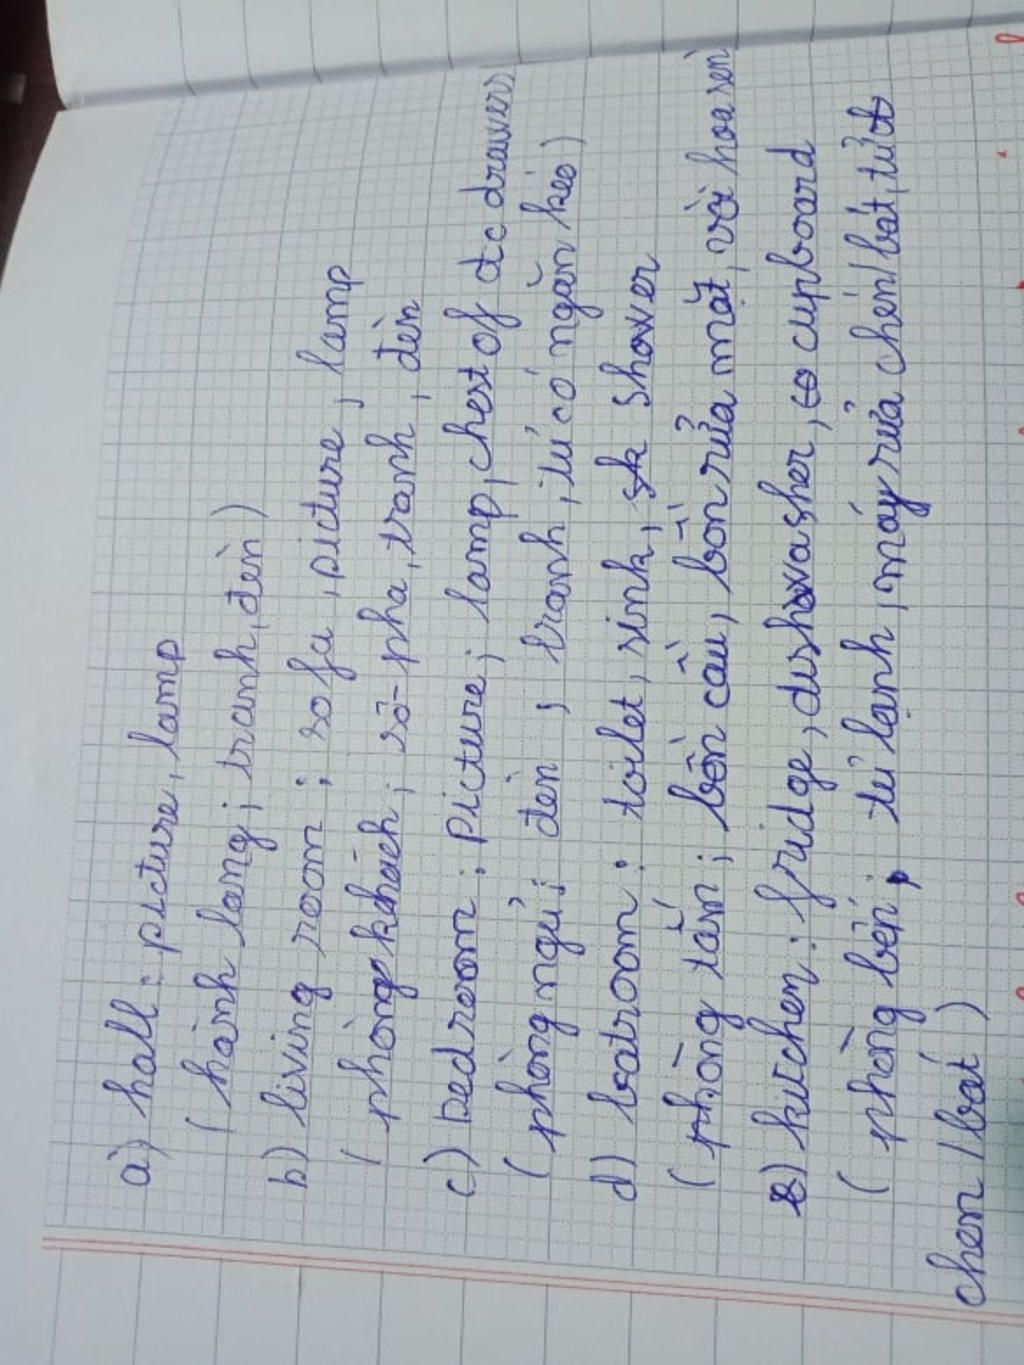 a) hall : picture, lamp
( hành lang ; tranh, đèn )
b) living room : sofa, picture, lamp
( phòng khách ; sô-pha, tranh, đèn
c) bedroom : picture ; lamp, chest of drawers
( phòng ngủ ; đèn , tranh, tủ có ngăn kéo )
d) batroom : toilet, sink, shower
( phòng tắm ; bồn cầu, bồn rửa mặt, vòi hoa sen
e) kitchen : fridge, dishwasher, cupboard
( phòng bếp ; tủ lạnh, máy rửa chén/bát, tủ
chen /bát )